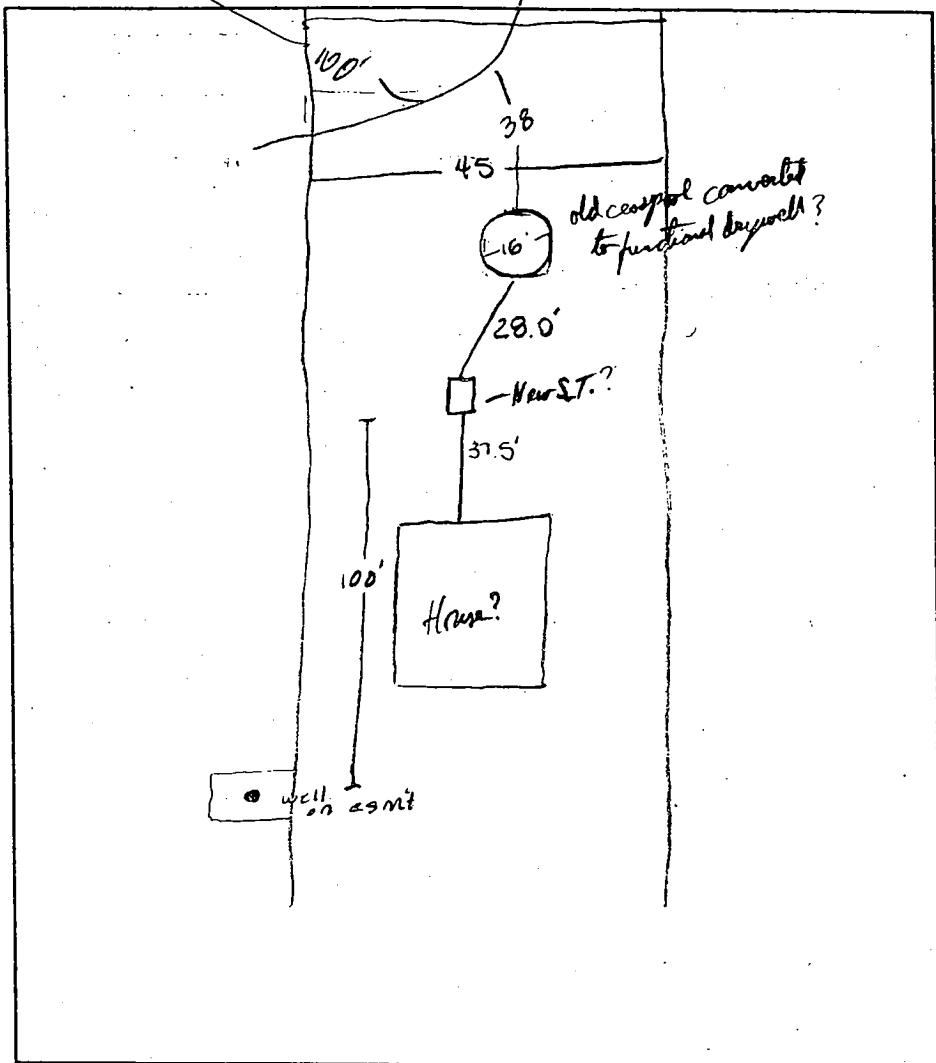 100'
38
45
old cesspool converted
to functional drywell?
16'
28.0'
New S.T.?
37.5'
100'
House?
well
on esm't